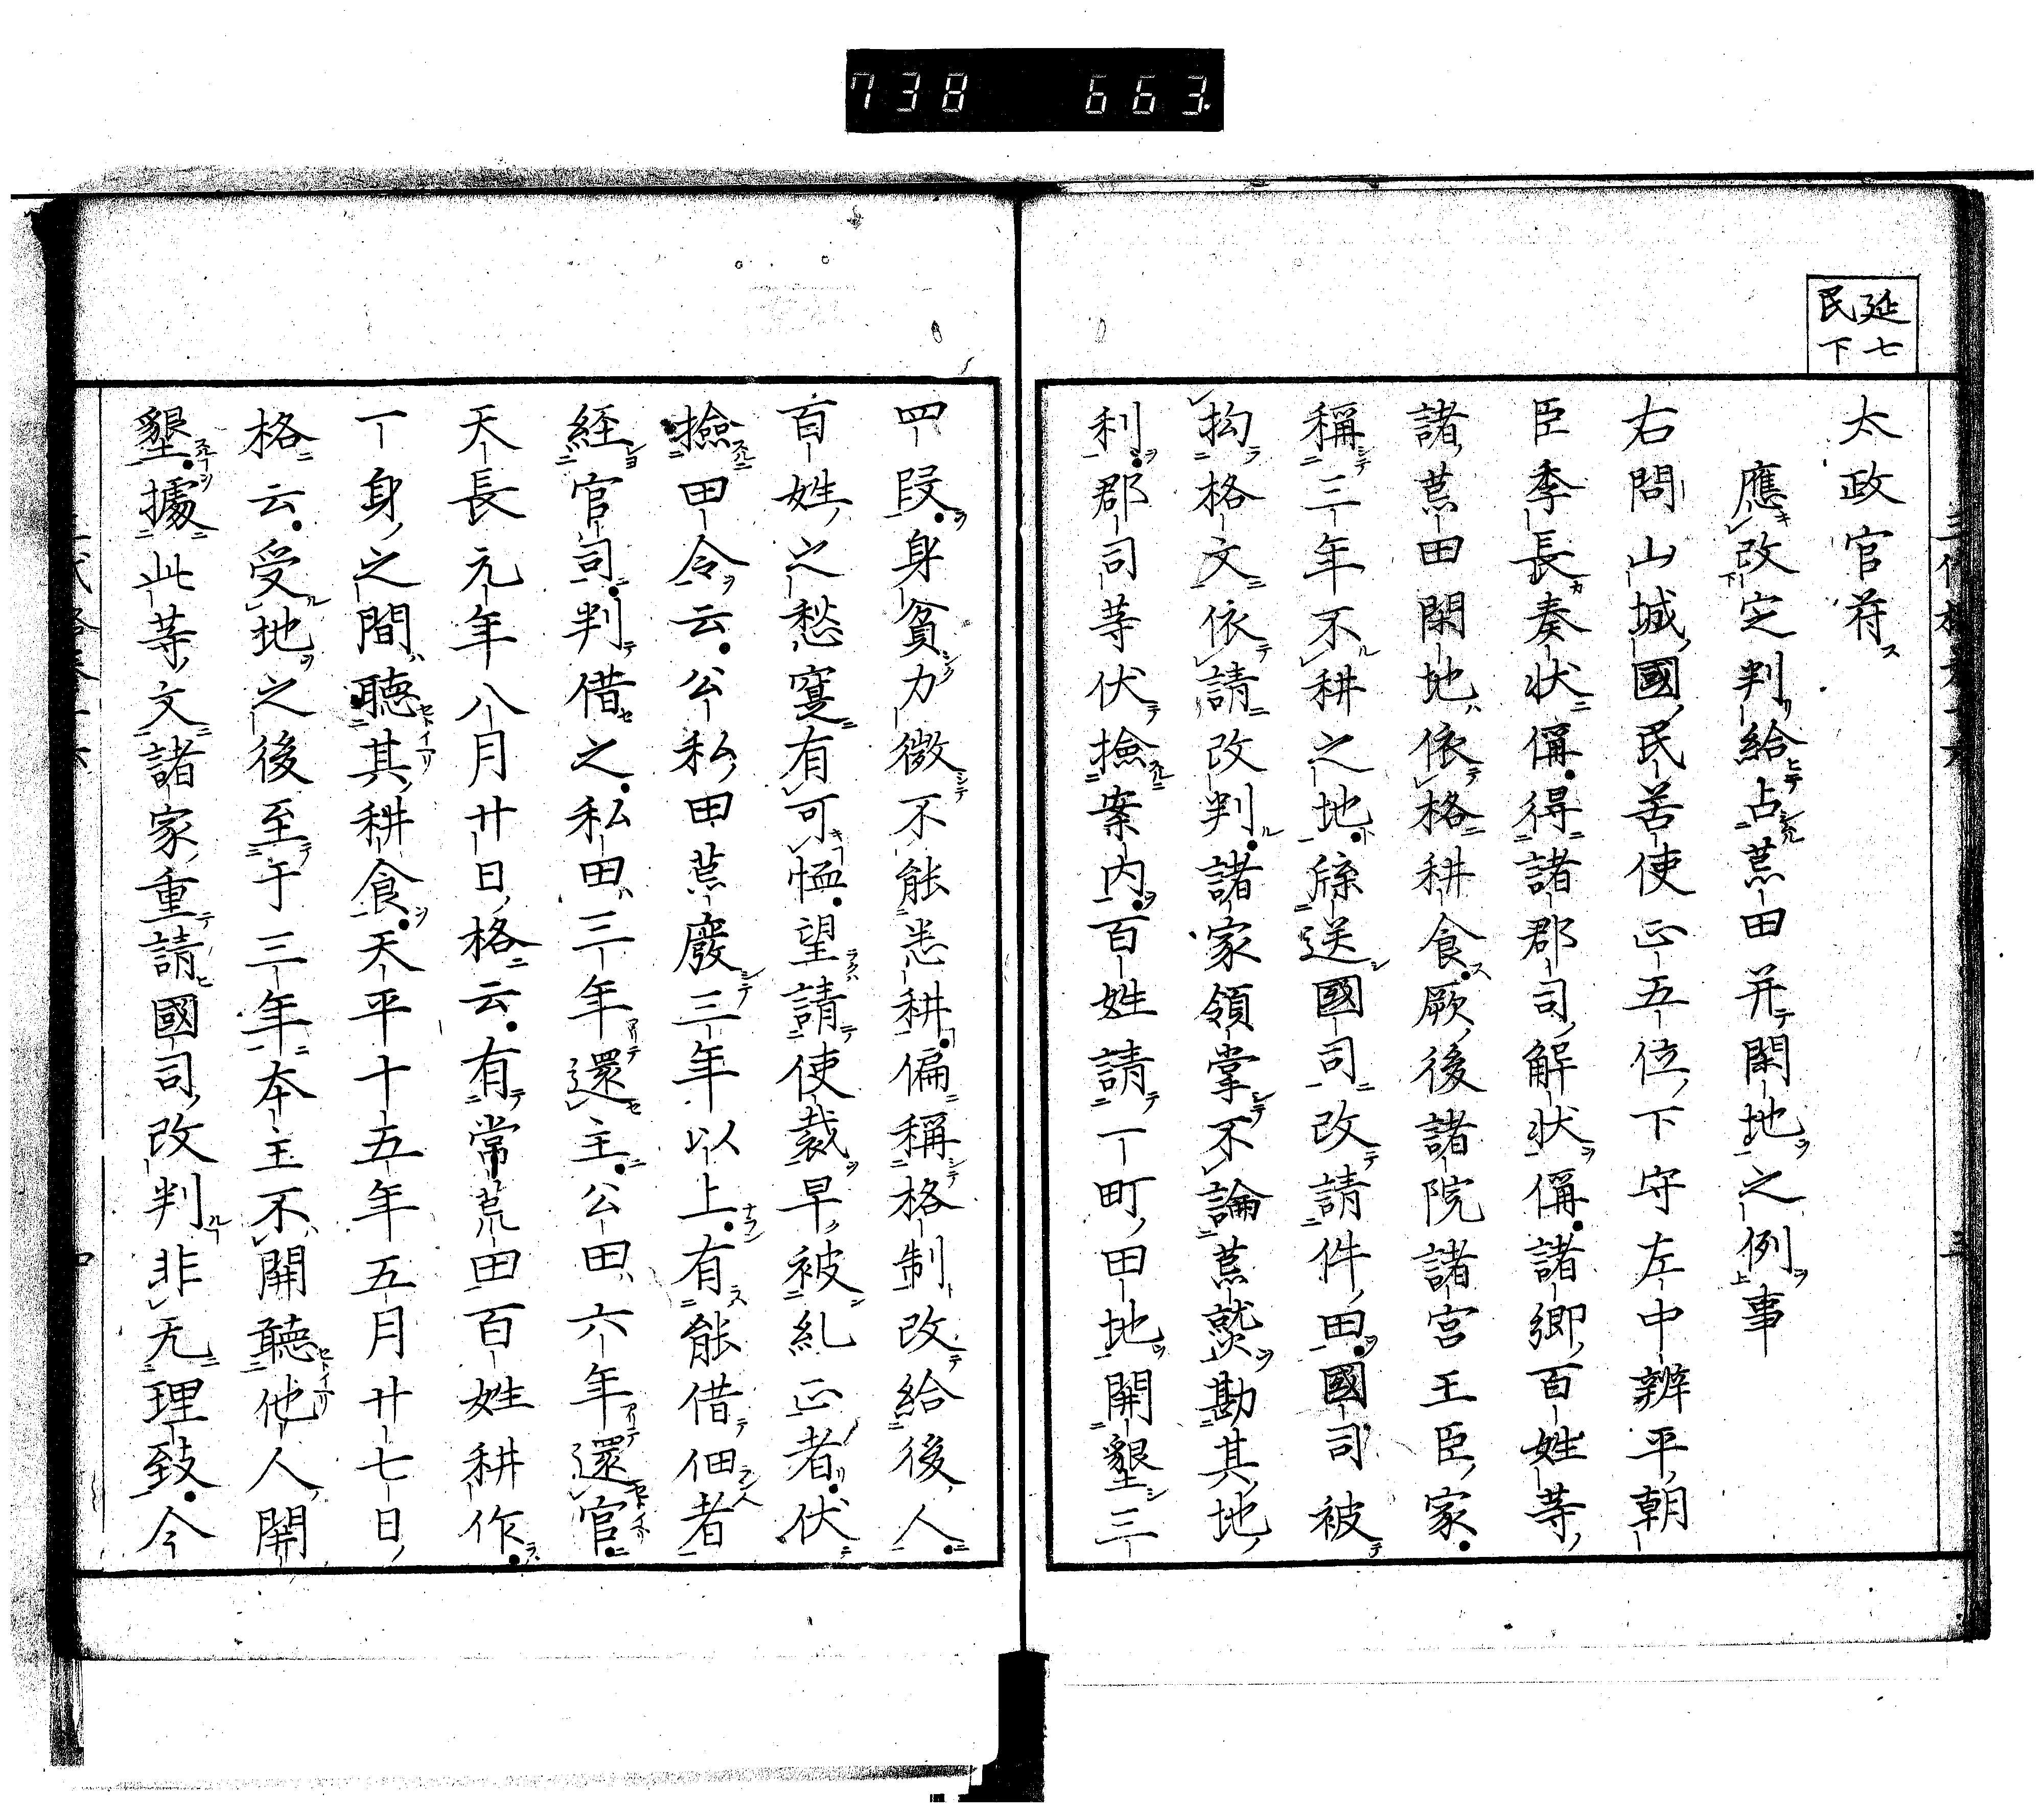 738 663.
延七
民下
太政官符
應改定判給占荒田并閑地之例事
右問山城國民苦使正五位下守左中辨平朝
臣季長奏状偁得諸郡司解状偁諸郷百姓等
諸荒田閑地依格耕食厥後諸院諸宮王臣家
稱三年不耕之地牒送國司改請件田國司被
拘格文依請改判諸家領掌不論荒熟勘其地
利郡司等伏撿案内百姓請一町田地開墾三
四段身貧力微不能悉耕偏稱格制改給後人
百姓之愁寔有可恤望請使裁早被糺正者伏
撿田令云公私田荒廢三年以上有能借佃者
経官司判借之私田三年還主公田六年還官
天長元年八月廿日格云有常荒田百姓耕作
一身之間聴其耕食天平十五年五月廿七日
格云受地之後至于三年本主不開聴他人開
墾據此等文諸家重請國司改判非无理致今